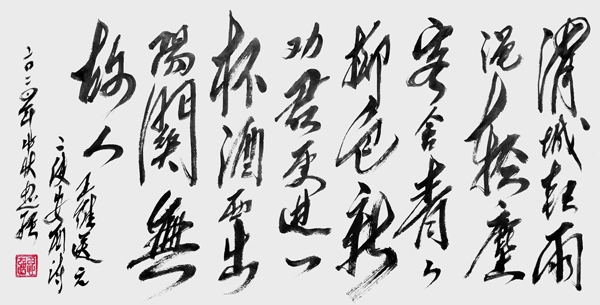 渭城朝雨
浥轻塵
客舍青々
柳色新
劝君更进一
杯酒西出
陽關無
故人
王维送元
二使安西诗
二〇二四年中秋